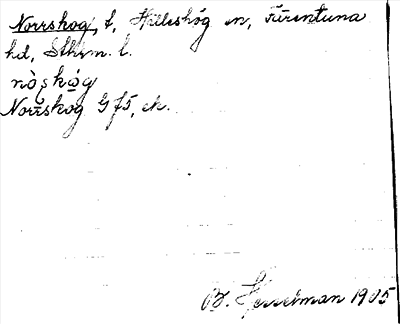 Norrskog, t, Hilleshög sn, Färentuna
hd, Sthlm. l.
nò̀ʂkå̀g
Norrskog G f5, ek.
B. Hesselman 1905